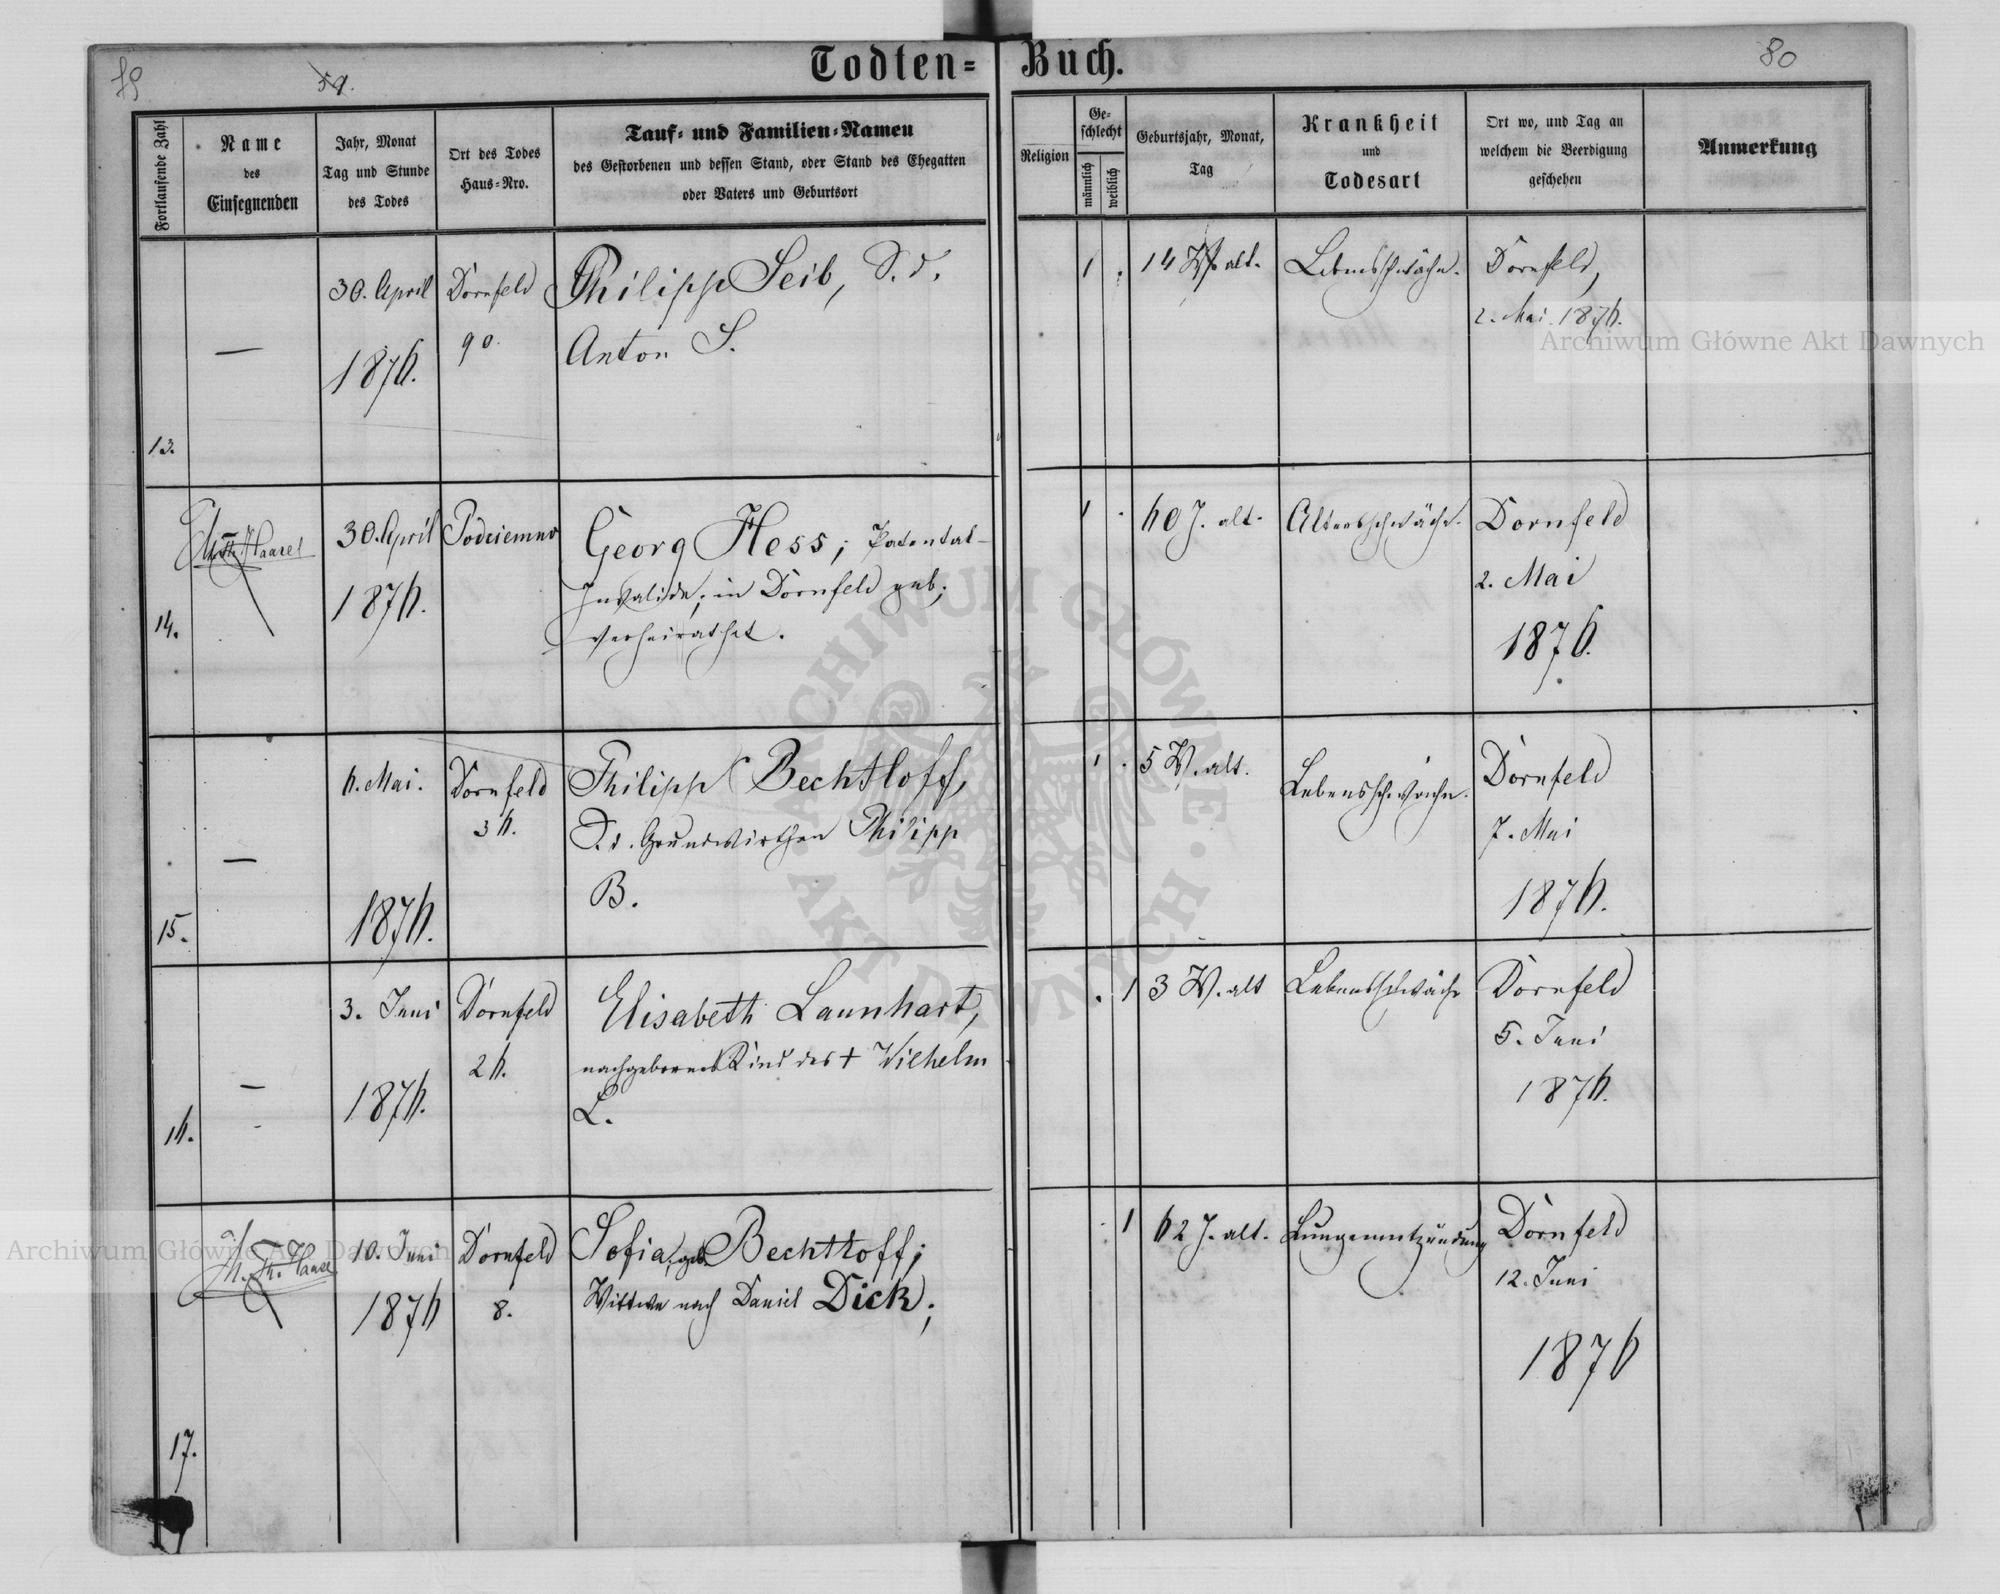 Todten= Buch.
59.
80
Fortlaufende Zahl
Name
des
Einsegnenden
Jahr, Monat
Tag und Stunde
des Todes
Ort des Todes
Haus=Nro.
Tauf= und Familien=Namen
des Gestorbenen und dessen Stand, oder Stand des Ehegatten
oder Vaters und Geburtsort
Religion
Ge-
schlecht
männlich
weiblich
Geburtsjahr, Monat,
Tag
Krankheit
und
Todesart
Ort wo, und Tag an
welchem die Beerdigung
geschehen
Anmerkung
13.
—
30. April
1876.
Dornfeld
90.
Philipp Seib, S. d.
Anton S.
1 .
14 W. alt.
Lebensschwäche.
Dornfeld,
2. Mai 1876.
14.
Haase
30. April
1876.
Podciemno
Georg Hess; Patental-
Invalide; in Dornfeld geb;
verheirathet.
1 .
60 J. alt.
Altersschwäche.
Dornfeld
2. Mai
1876.
15.
—
6. Mai.
1876.
Dornfeld
36.
Philipp Bechtloff,
S. d. Grundwirthen Philipp
B.
1 .
5 W. alt.
Lebensschwäche.
Dornfeld
7. Mai
1876.
16.
—
3. Juni
1876.
Dornfeld
26.
Elisabeth Launhart,
nachgebornes Kind des † Wilhelm
L.
. 1
3 W. alt
Lebensschwäche
Dornfeld
5. Juni
1876.
17.
Haase
10. Juni
1876
Dornfeld
8.
Sofia, geb. Bechtloff;
Wittwe nach Daniel Dick;
. 1
62 J. alt.
Lungenentzündung
Dornfeld
12. Juni
1876
Archiwum Główne Akt Dawnych
Archiwum Główne Akt Dawnych
ARCHIWUM GŁÓWNE · AKT DAWNYCH ·